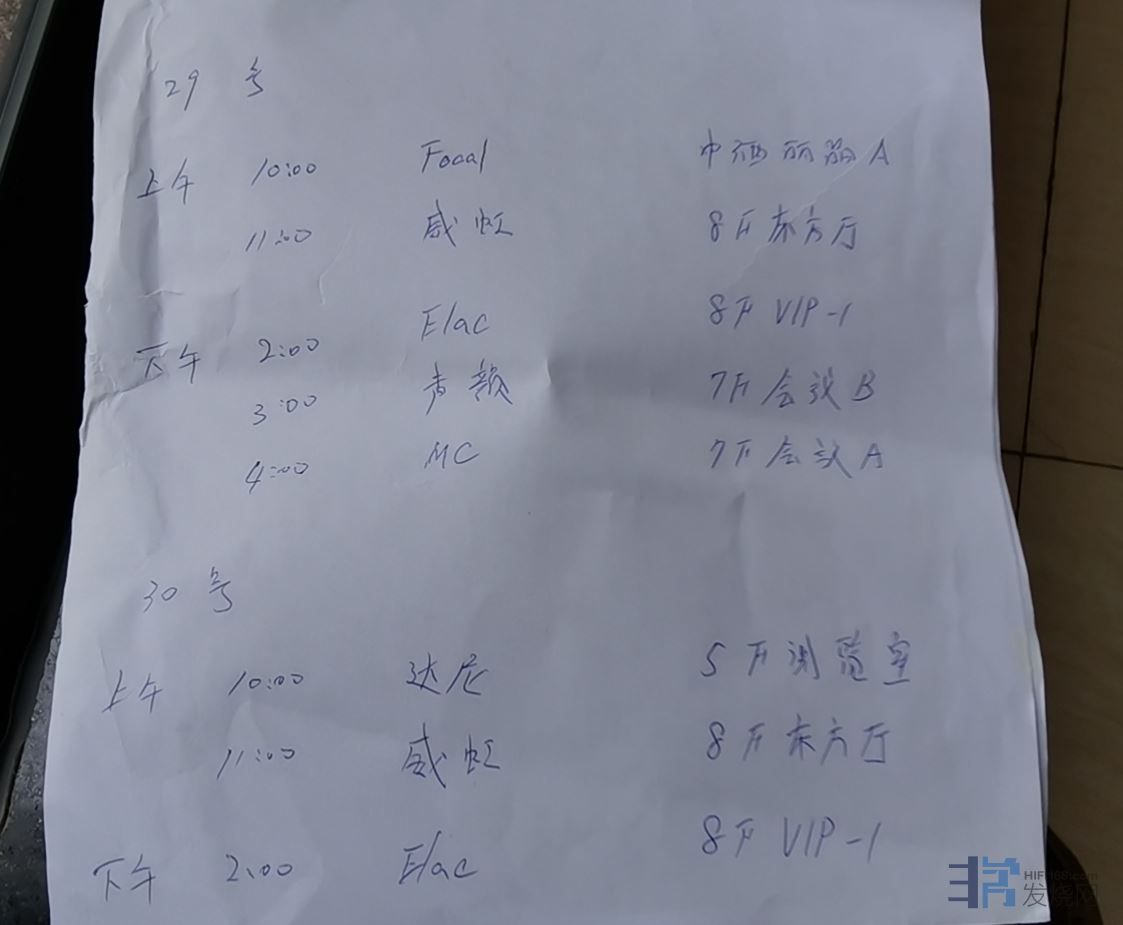 29 号
上午 10:00 Focal 中西丽晶 A
11:00 威虹 8F 东方厅
下午 2:00 Elac 8F VIP-1
3:00 声韵 7F 会议 B
4:00 MC 7F 会议 A
30 号
上午 10:00 达尼 5F 测验室
11:00 威虹 8F 东方厅
下午 2:00 Elac 8F VIP-1
HIFI168.com
发烧网